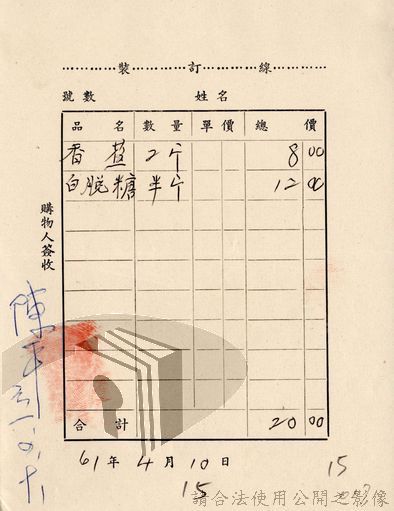 裝訂線
號數 姓名
品名 數量 單價 總價
香 2斤 800
白脫糖 半斤 1200
合計 2000
購物人簽收
61年4月10日
15
15
請合法使用公開之影像